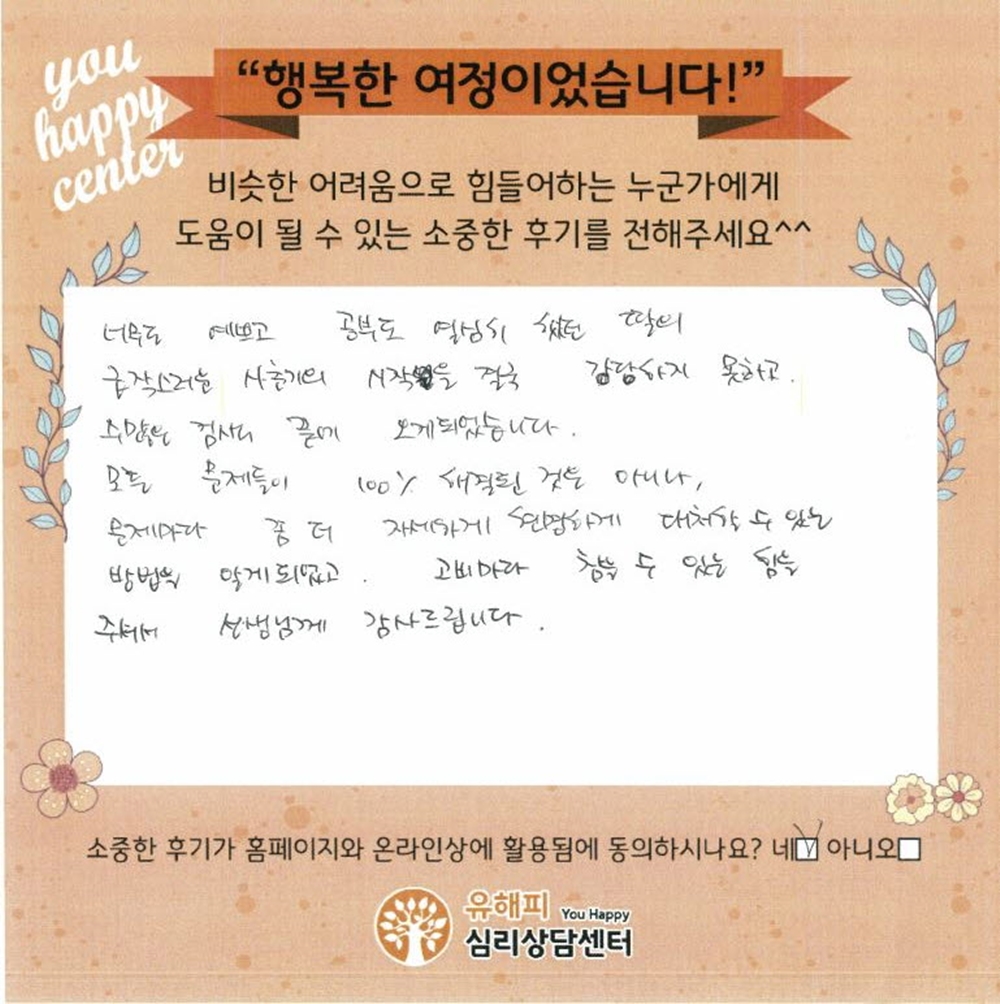 you
happy
center
“행복한 여정이었습니다!”
비슷한 어려움으로 힘들어하는 누군가에게
도움이 될 수 있는 소중한 후기를 전해주세요^^
너무도 예쁘고 공부도 열심히 했던 딸의
급작스러운 사춘기의 시작을 결국 감당하지 못하고.
수많은 검사의 끝에 오게되었습니다.
모든 문제들이 100% 해결된 것은 아니나,
문제마다 좀 더 자세하게 현명하게 대처할 수 있는
방법을 알게되었고. 고비마다 참을 수 있는 힘을
주셔서 선생님께 감사드립니다.
소중한 후기가 홈페이지와 온라인상에 활용됨에 동의하시나요? 네☑ 아니오☐
유해피 You Happy
심리상담센터